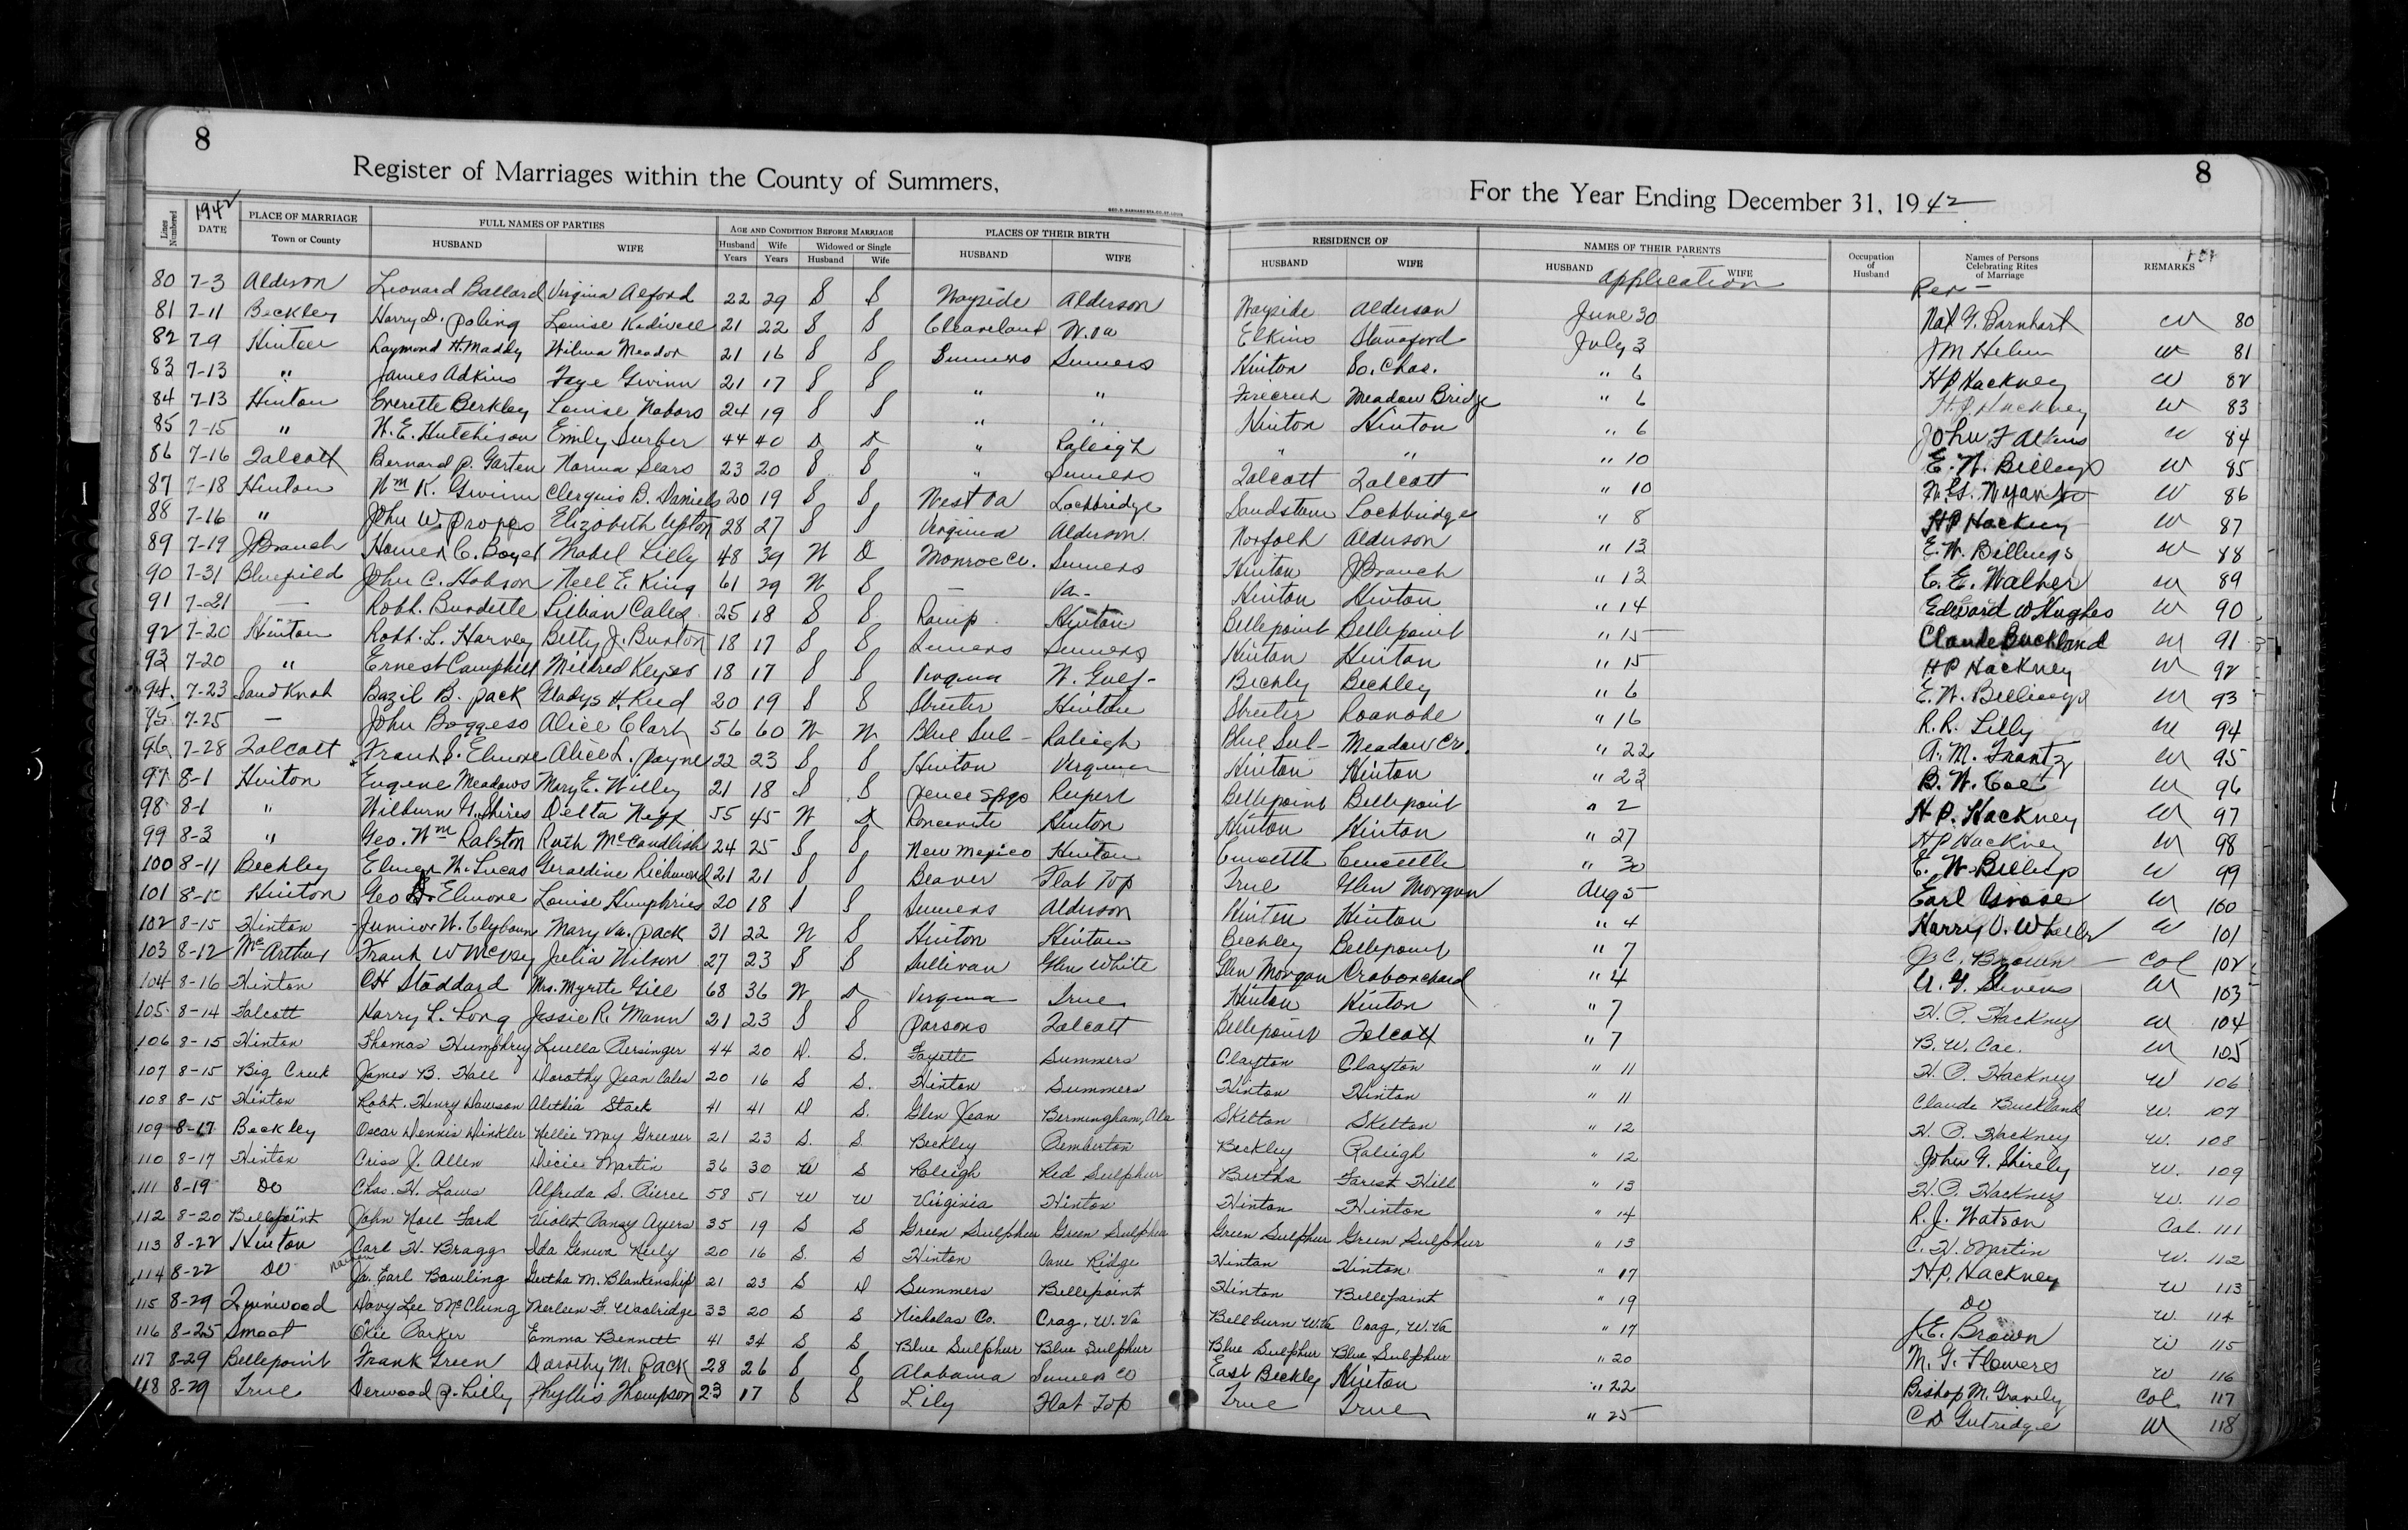 8
Register of Marriages within the County of Summers,
Lines Numbered 1942 DATE PLACE OF MARRIAGE Town or County FULL NAMES OF PARTIES HUSBAND WIFE AGE AND CONDITION BEFORE MARRIAGE Husband Years Wife Years Widowed or Single Husband Wife PLACES OF THEIR BIRTH HUSBAND WIFE
80 7-3 Alderson Leonard Ballard Virginia Alford 22 29 S S Wayside Alderson
81 7-11 Beckley Harry D. Poling Louise Kadwell 21 22 S S Cleaveland W.Va
82 7-9 Hinton Raymond H. Maddy Wilma Meador 21 16 S S Summers Summers
83 7-13 " James Adkins Faye Gwinn 21 17 S S " "
84 7-13 Hinton Everette Berkley Louise Nabors 24 19 S S " "
85 7-15 " W. E. Hutchison Emily Surber 44 40 D D " Raleigh
86 7-16 Talcott Bernard P. Garten Norma Sears 23 20 S S " Summers
87 7-18 Hinton Wm K. Gwinn B. Daniels 20 19 S S West Va Lockbridge
88 7-16 " John W. Propes Elizabeth Upton 28 27 S S Virginia Alderson
89 7-19 J Branch Homer C. Boyd Mabel Lilly 48 39 W D Monroe Co. Summers
90 7-31 Bluefield John C. Hobson Nell E. King 61 29 W S — Va-
91 7-21 — Robt. Burdette Lillian Cales 25 18 S S Ramp Hinton
92 7-20 Hinton Robt. L. Harvey Betty J. Burton 18 17 S S Summers Summers
93 7-20 " Ernest Campbell Mildred Keyser 18 17 S S Virginia W. Gulf-
94. 7-23 Sand Knob Bazil B. Pack Gladys H. Reed 20 19 S S Streeter Hinton
95 7-25 — John Boggess Alice Clark 56 60 W W Blue Sul- Raleigh
96 7-28 Talcott Frank S. Elmore Alice L. Payne 22 23 S S Hinton Virginia
97 8-1 Hinton Eugene Meadows Mary E. Willey 21 18 S S Pence Spgs Rupert
98 8-1 " Wilburn G. Shires Delta Neff 55 45 W D Ronceverte Hinton
99 8-3 " Geo. Wm Ralston Ruth McCandlish 24 25 S S New Mexico Hinton
100 8-11 Beckley Elmer W. Lucas Geraldine Richmond 21 21 S S Beaver Flat Top
101 8-10 Hinton Geo D. Elmore Louise Humphries 20 18 S S Summers Alderson
102 8-15 Hinton Junior W. Clyburn Mary Va. Pack 31 22 W S Hinton Hinton
103 8-12 McArthur Frank W McVey Julia Wilson 27 23 S S Sullivan Glen White
104 8-16 Hinton CH Stoddard Mrs. Myrtle Gill 68 36 W D Virginia True
105 8-14 Talcott Harry L. Long Jessie R. Mann 21 23 S S Parsons Talcott
106 8-15 Hinton Thomas Humphrey Luella Persinger 44 20 D. S. Fayette Summers
107 8-15 Big Creek James B. Hall Dorothy Jean Cales 20 16 S S. Hinton Summers
108 8-15 Hinton Robt. Henry Dawson Alethia Stack 41 41 D S. Glen Jean Bermingham, Ala
109 8-17 Beckley Oscar Dennis Winkler Nellie May Greener 21 23 S. S Beckley Pemberton
110 8-17 Hinton Criss J. Allen Dicie Martin 36 30 W S Raleigh Red Sulphur
111 8-19 Do Chas. H. Laws Alfreda S. Pierce 58 51 W W Virginia Hinton
112 8-20 Bellepoint John Noel Ford Violet Pansy Ayers 35 19 S S Green Sulphur Green Sulphur
113 8-22 Hinton Carl H. Bragg Ida Geneva Keily 20 16 S. S Hinton Cave Ridge
114 8-22 Do Ja. Earl Bowling Gertha M. Blankenship 21 23 S D Summers Bellepoint
115 8-29 Quinwood Davy Lee McClung Merleen F. Woolridge 33 20 S S Nicholas Co. Crag, W. Va
116 8-25 Smoot Okie Parker Emma Bennett 41 34 S S Blue Sulphur Blue Sulphur
117 8-29 Bellepoint Frank Green Dorothy M. Pack 28 26 S S Alabama Summers Co
118 8-29 True Derwood P. Lilly Phyllis Thompson 23 17 S S Lily Flat Top
8
For the Year Ending December 31, 1942
RESIDENCE OF HUSBAND WIFE NAMES OF THEIR PARENTS HUSBAND WIFE Application Occupation of Husband Names of Persons Celebrating Rites of Marriage Rev- REMARKS
Wayside Alderson June 30 Nat G. Barnhart W 80
Elkins Stanaford July 3 J M Helm W 81
Hinton So. Chas. " 6 H P Hackney W 82
Firecreek Meadow Bridge " 6 H. P. Hackney W 83
Hinton Hinton " 6 John F Atkins W 84
" " " 10 E. W. Billups W 85
Talcott Talcott " 10 W 86
Sandstone Lockbridge " 8 H P Hackney W 87
Norfolk Alderson " 13 E. W. Billups W 88
Hinton J Branch " 13 C. E. Walker W 89
Hinton Hinton " 14 Edward W Hughes W 90
Bellepoint Bellepoint " 15 Claude Buckland W 91
Hinton Hinton " 15 H P Hackney W 92
Beckley Beckley " 6 E. W. Billups W 93
Streeter Roanoke " 16 R. R. Lilly W 94
Blue Sul- Meadow Cr. " 22 A. M. Frantz W 95
Hinton Hinton " 23 B. W. Coe W 96
Bellepoint Bellepoint " 2 H. P. Hackney W 97
Hinton Hinton " 27 H P Hackney W 98
" 30 E. W. Billups W 99
True Glen Morgan Aug 5 Earl W 100
Hinton Hinton " 4 Harry O. Wheeler W 101
Beckley Bellepoint " 7 J. C. Brown — Col 102
Glen Morgan Craborchard " 4 A. G. Stevens W 103
Hinton Hinton " 7 H. P. Hackney W 104
Bellepoint Talcott " 7 B. W. Coe. W 105
Clayton Clayton " 11 H. P. Hackney W 106
Hinton Hinton " 11 Claude Buckland W. 107
Skelton Skelton " 12 H. P. Hackney W. 108
Beckley Raleigh " 12 John G. Shirely W. 109
Bertha Forest Hill " 13 H. P. Hackney W. 110
Hinton Hinton " 14 R. J. Watson Col. 111
Green Sulphur Green Sulphur " 13 C. H. Martin W. 112
Hinton Hinton " 17 H.P. Hackney W 113
Hinton Bellepoint " 19 Do W. 114
Bellburn W.Va Crag, W. Va " 17 J. E. Brown W 115
Blue Sulphur Blue Sulphur " 20 M. G. Flowers W 116
East Beckley Hinton " 22 Bishop M. Gravely Col. 117
True True " 25 C D Gutridge W 118